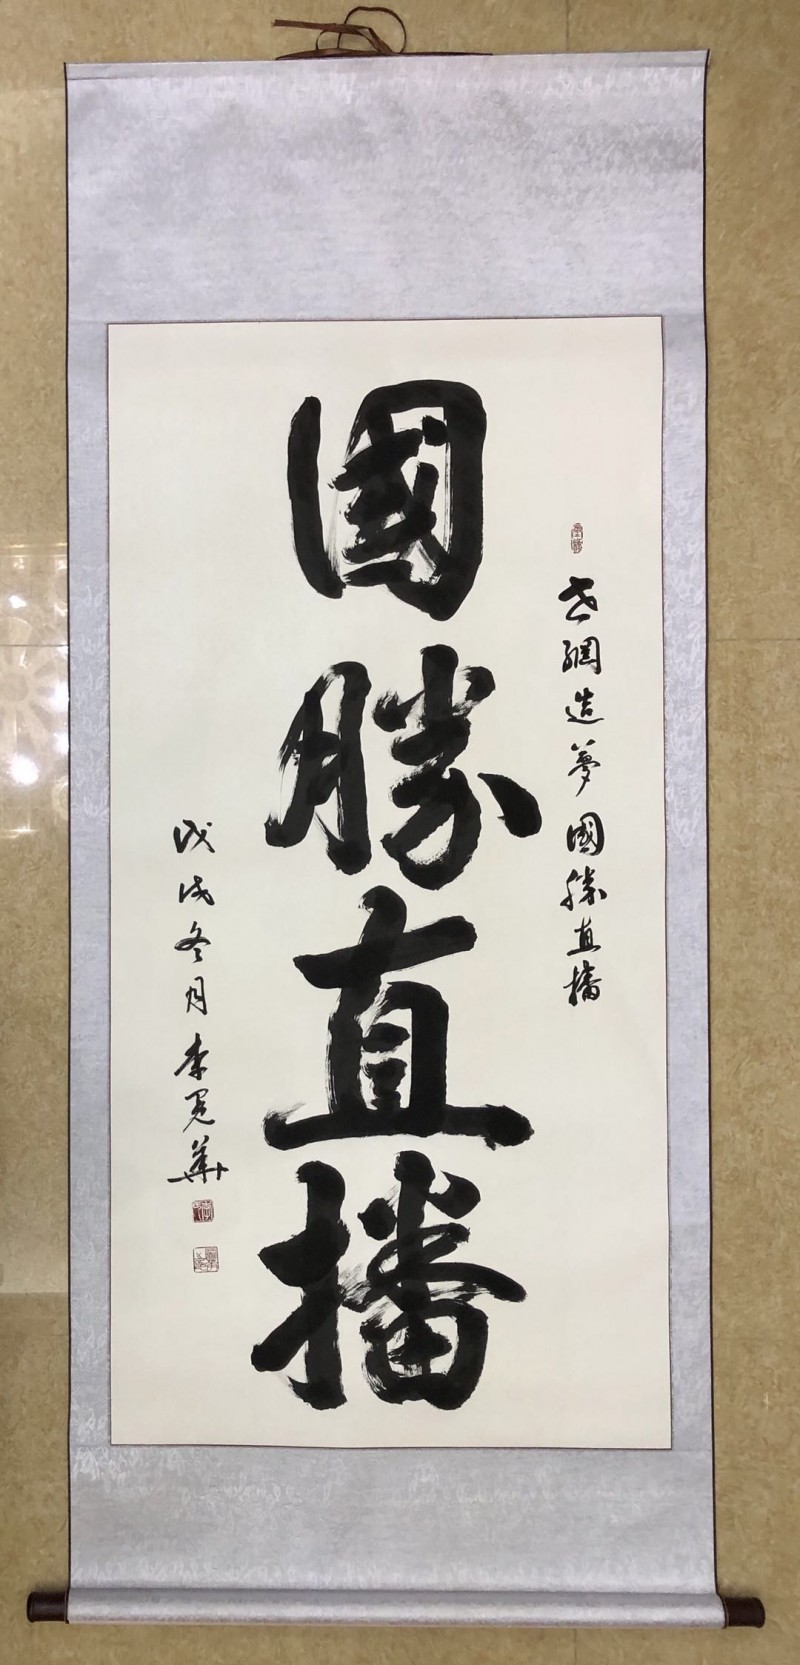 網造夢國勝直播
國勝直播
戊戌冬月李華